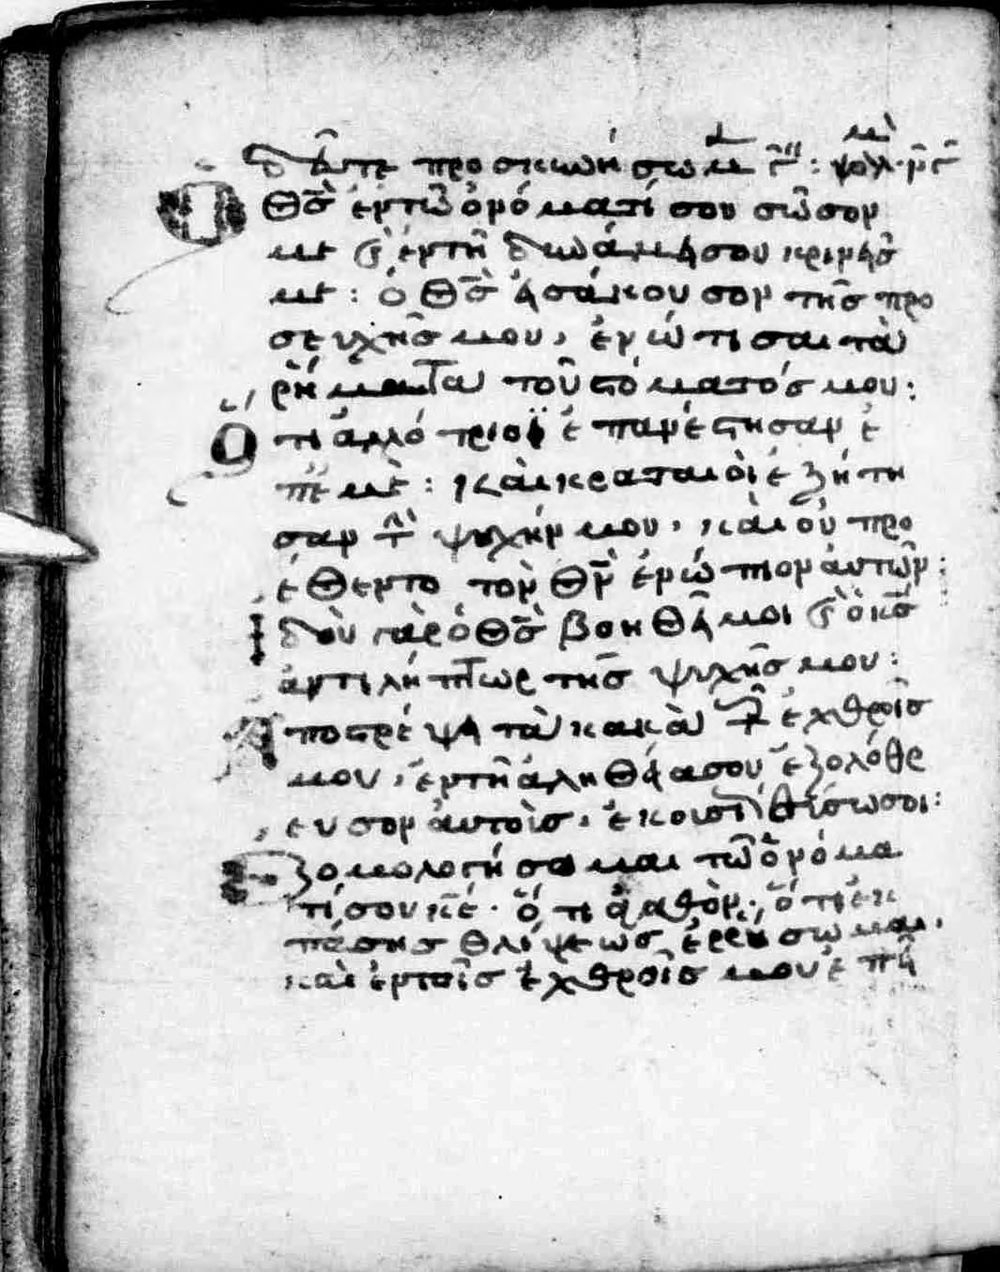 δεῦτε προσκυνήσωμ γ´´: ψαλμ νγ
Ὁ θς̄ ἐν τῶ ὀνόματί σου σῶσον
με ϗ ἐν τῆ δυνάμη σου κρινῆς
με: ὁ θς̄ ἠσάκουσον τῆς προ
σευχῆς μου, ἐνώτισαι τὰ
ρήματα τοῦ στόματός μου:
Ὅτι ἀλλότριοϊ ἐπανέστησαν ἐ
π' ἐμὲ: καὶ κραταιοὶ ἐζήτη
σαν τὴν ψυχήν μου, καὶ οὐ προ
έθεντο τὸν θν̄ ἐνώπιον αὐτῶν:
Ἰδοὺ γὰρ ὁ θς̄ βοηθῆ μοι ϗ ὁ κς̄
ἀντιλήπτωρ τῆς ψυχῆς μου:
Ἀποστρέψη τὰ κακὰ τοῖς ἐχθροῖς
μου, ἐν τῆ ἀληθεία σου ἐξολόθρ
ευσον αὐτοῖς. ἑκουσίως θύσω σοι:
Ἐξομολογήσομαι τῶ ὀνόμα
τί σου κε̄· ὅτι ἀγαθὸν, ὅτι ἐκ
πάσης θλίψεως ἐρρύσω με,
καὶ ἐν τοῖς ἐχθροῖς μου ἐπῆ